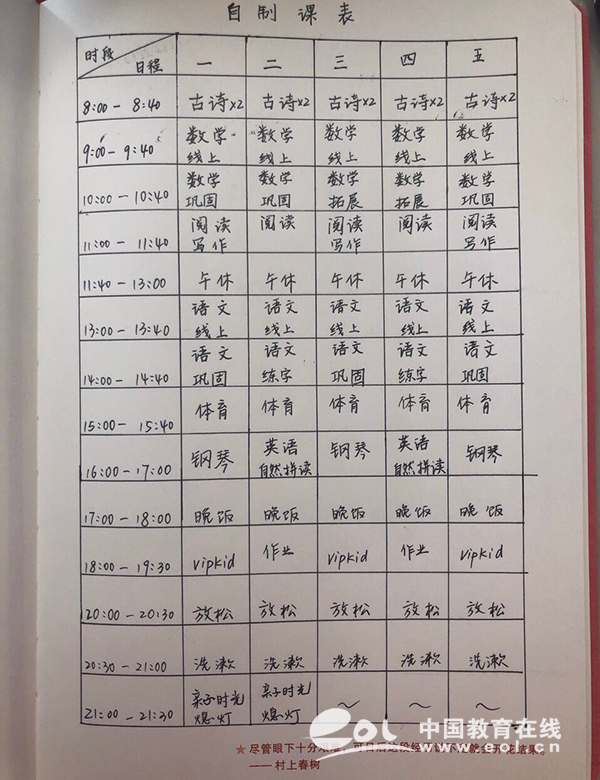 自制课表
时段 日程 一 二 三 四 五
8:00 - 8:40 古诗x2 古诗x2 古诗x2 古诗x2 古诗x2
9:00 - 9:40 数学 数学 数学 数学 数学
线上 线上 线上 线上 线上
10:00 - 10:40 数学 数学 数学 数学 数学
巩固 巩固 拓展 拓展 巩固
11:00 - 11:40 阅读 阅读 阅读 阅读 阅读
写作 写作 写作
11:40 - 13:00 午休 午休 午休 午休 午休
13:00 - 13:40 语文 语文 语文 语文 语文
线上 线上 线上 线上 线上
14:00 - 14:40 语文 语文 语文 语文 语文
巩固 练字 巩固 练字 巩固
15:00 - 15:40 体育 体育 体育 体育 体育
16:00 - 17:00 钢琴 英语 钢琴 英语 钢琴
自然拼读 自然拼读
17:00 - 18:00 晚饭 晚饭 晚饭 晚饭 晚饭
18:00 - 19:30 vipkid 作业 vipkid 作业 vipkid
20:00 - 20:30 放松 放松 放松 放松 放松
20:30 - 21:00 洗漱 洗漱 洗漱 洗漱 洗漱
21:00 - 21:30 亲子时光 亲子时光 ~ ~ ~
熄灯 熄灯
eol 中国教育在线
www.eol.cn
★ 尽管眼下十分艰难，可日后这段经历说不定就会开花结果。
—— 村上春树